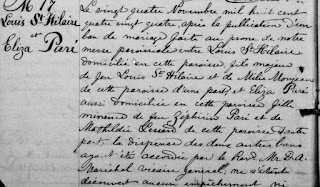 M 17
Louis St Hilaire
et
Eliza Paré
Le vingt quatre Novembre mil huit cent
quatre vingt quatre, après la publication d'un
ban de mariage faite au prône de notre
messe paroissiale entre Louis St Hilaire
domicilié en cette paroisse, fils majeur
de feu Louis St Hilaire et de Mélie
de cette paroisse d'une part, et Eliza Paré
aussi domiciliée en cette paroisse fille
mineure de feu Zéphirin Paré et de
Mathilde de cette paroisse d'autre
part, la dispense des deux autres bans
ayant été accordée par le Révd Mr D. A.
Maréchal vicaire général, ne s'étant
découvert aucun empêchement, ni